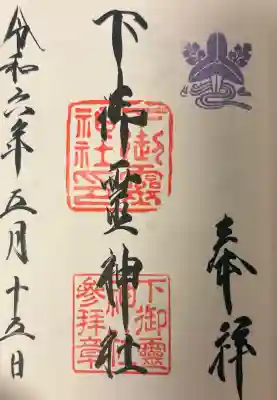 奉拝
下御靈神社
下御靈神社之印
下御靈神社参拝章
令和六年五月十五日